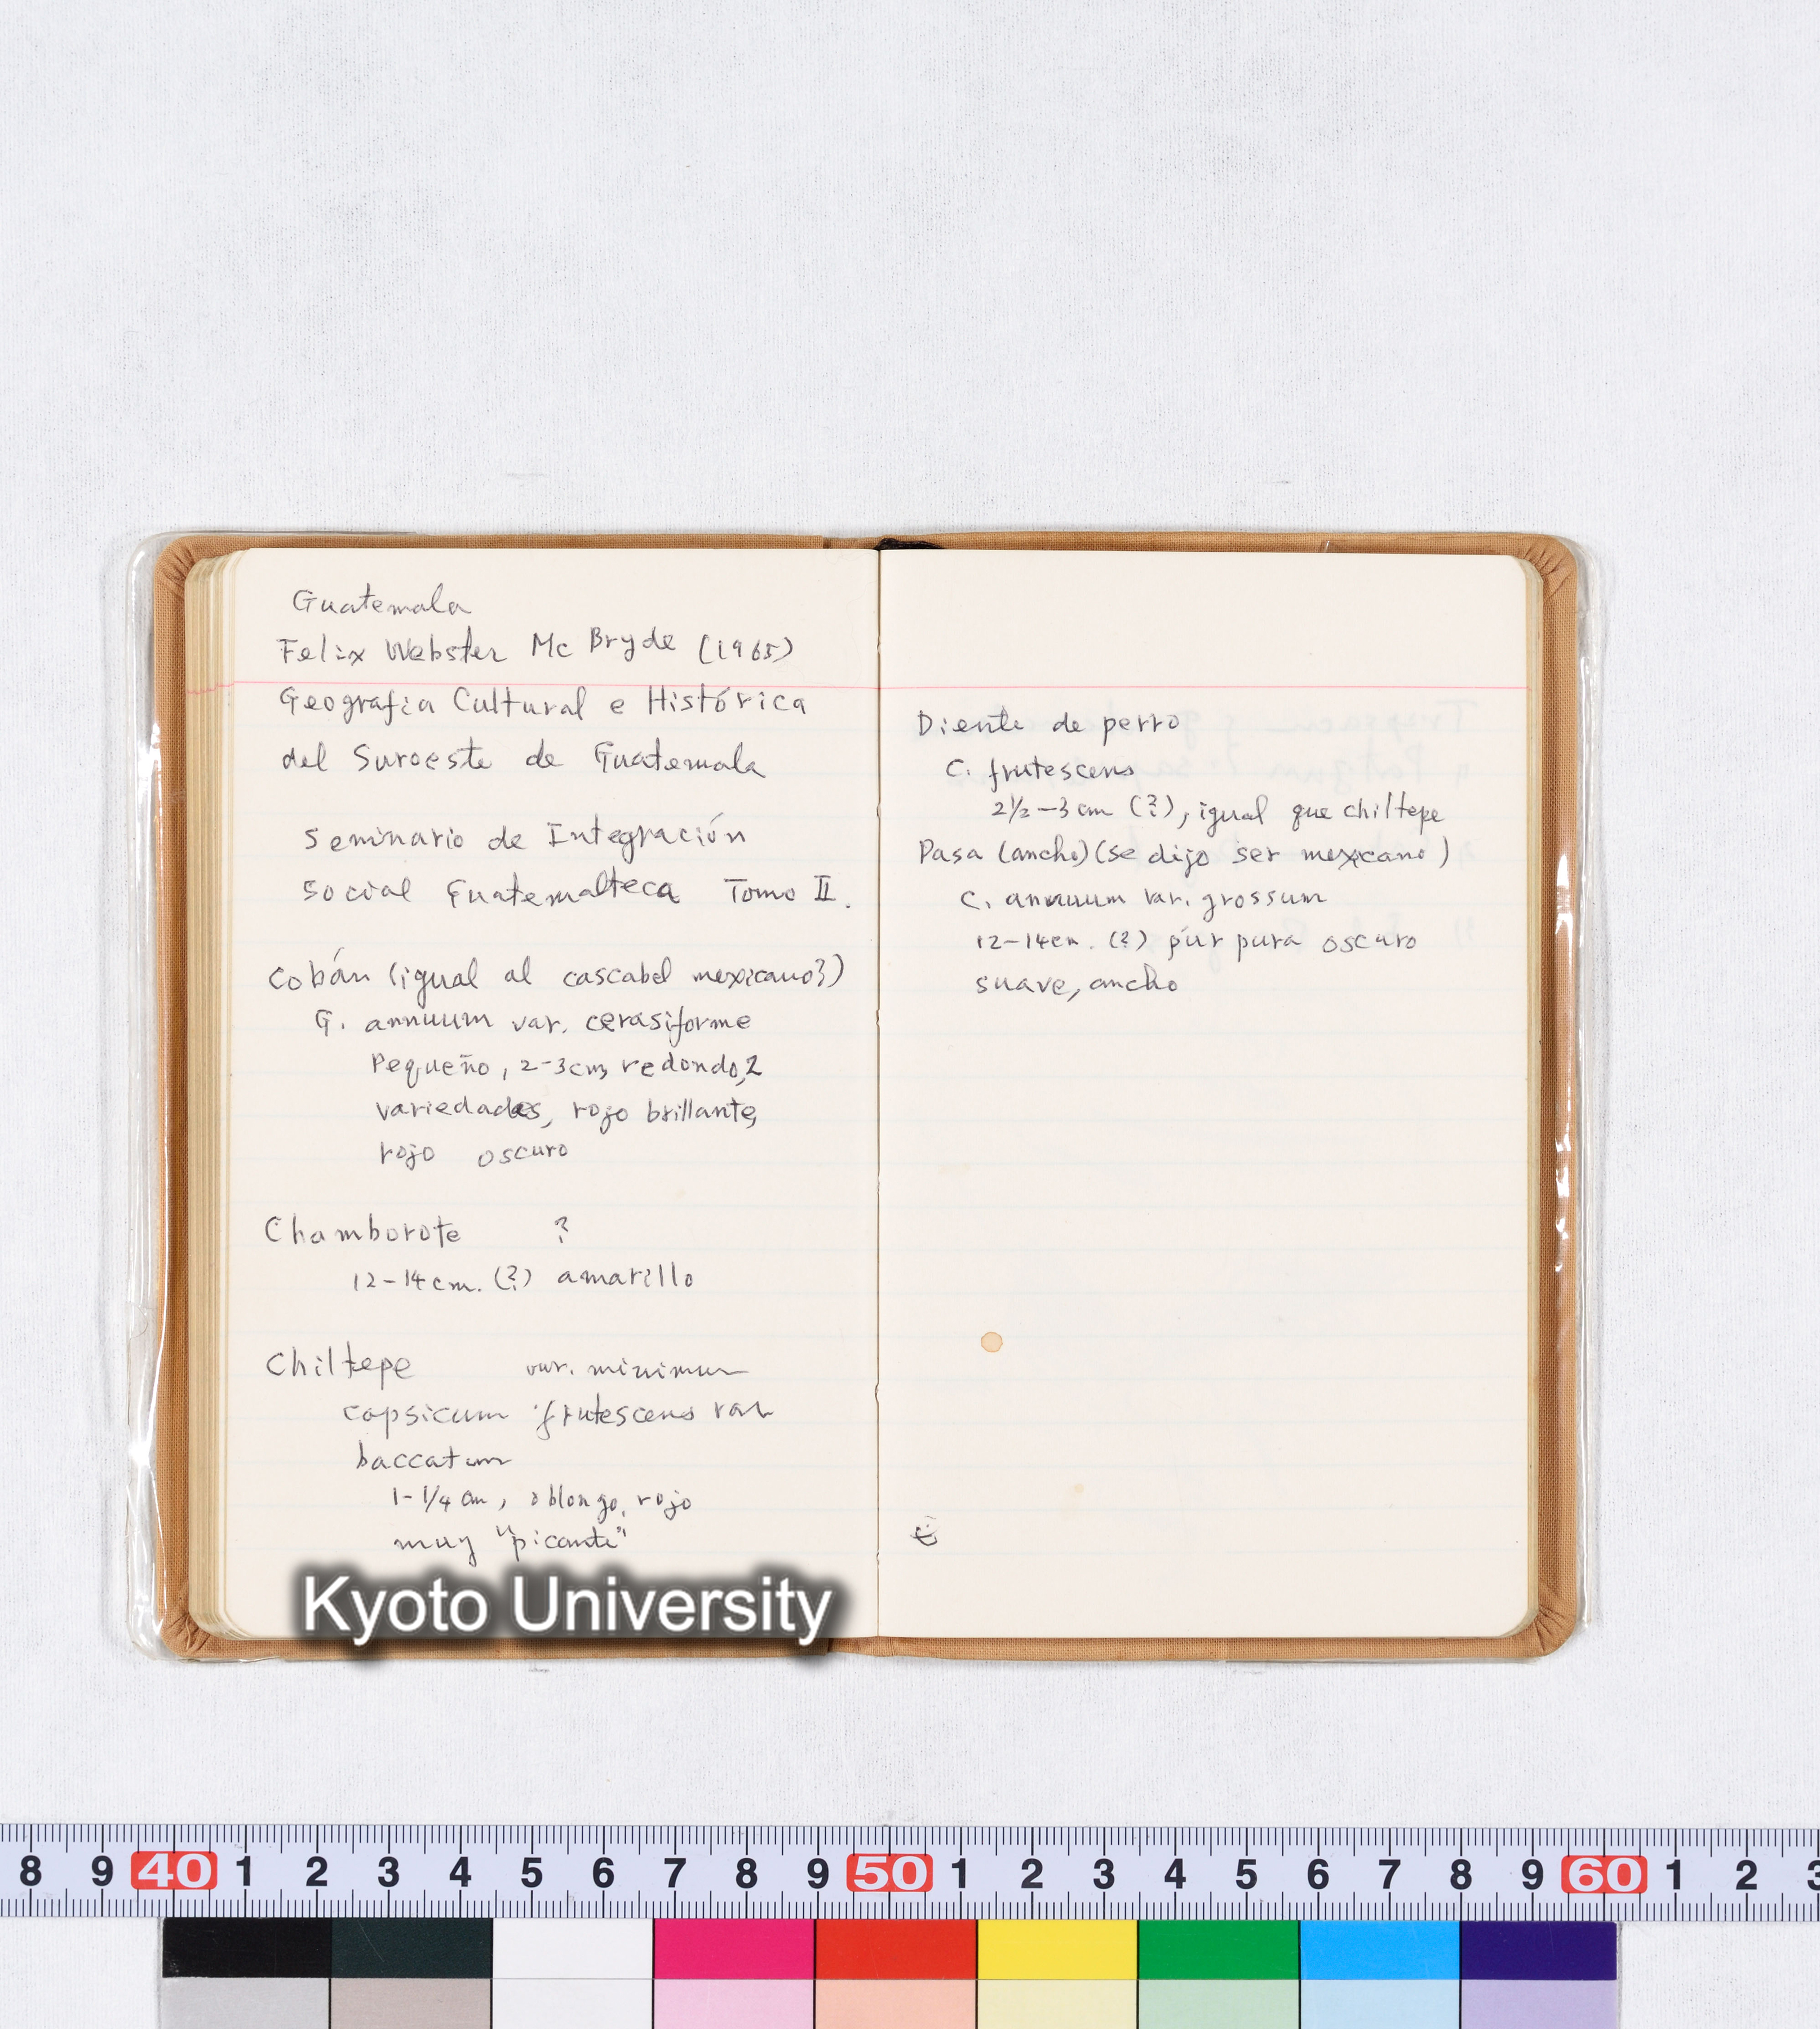 Guatemala
Felix Webster Mc Bryde (1965)
Geografia Cultural e Histórica
del Suroeste de Guatemala
Seminario de Integración
Social Guatemalteca Tomo II.
Cobán (igual al cascabel mexicano?)
G. annuum var. cerasiforme
Pequeño, 2-3cm, redondo, 2
variedades, rojo brillante,
rojo oscuro
Chamborote ?
12-14cm. (?) amarillo
Chiltepe var. minimum
capsicum frutescens var
baccatum
1-1/4 cm, oblongo, rojo
muy "picante"
Diente de perro
C. frutescens
2½-3 cm (?), igual que chiltepe
Pasa (ancho) (se dijo ser mexicano)
C. annuum var. grossum
12-14cm. (?) púrpura oscuro
suave, ancho
Kyoto University
8 9 40 1 2 3 4 5 6 7 8 9 50 1 2 3 4 5 6 7 8 9 60 1 2 3